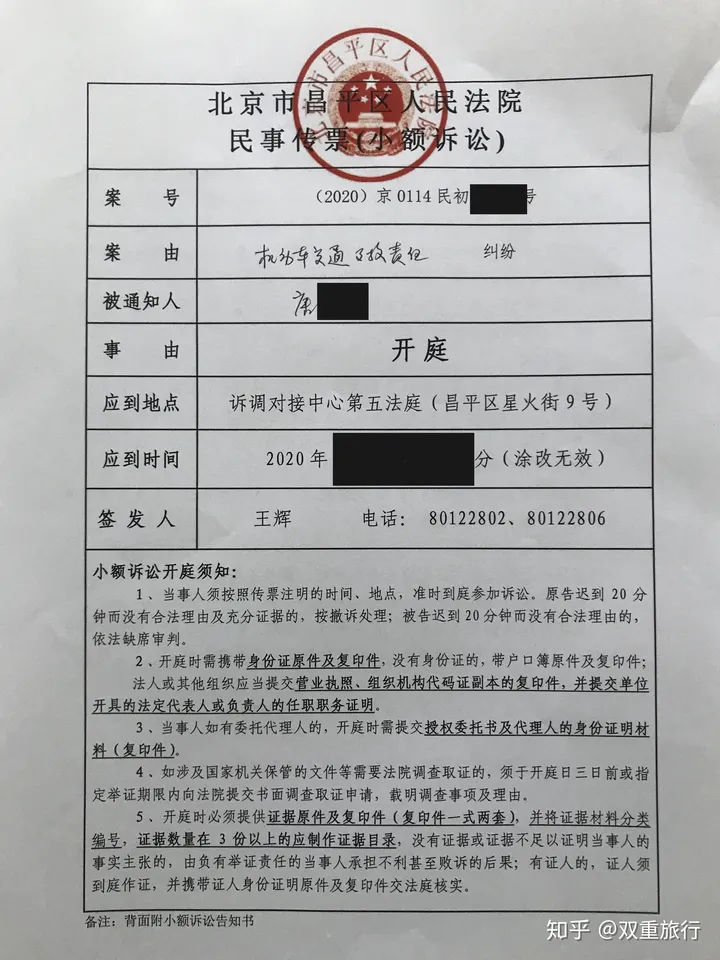 北京市昌平区人民法院
北京市昌平区人民法院
民事传票(小额诉讼)
案 号 (2020)京0114民初 号
案 由 机动车交通事故责任 纠纷
被通知人 唐
事 由 开庭
应到地点 诉调对接中心第五法庭(昌平区星火街9号)
应到时间 2020年 分(涂改无效)
签发人 王辉 电话: 80122802、80122806
小额诉讼开庭须知:
1、当事人须按照传票注明的时间、地点,准时到庭参加诉讼。原告迟到20分
钟而没有合法理由及充分证据的,按撤诉处理;被告迟到20分钟而没有合法理由的,
依法缺席审判。
2、开庭时需携带身份证原件及复印件,没有身份证的,带户口簿原件及复印件;
法人或其他组织应当提交营业执照、组织机构代码证副本的复印件,并提交单位
开具的法定代表人或负责人的任职职务证明。
3、当事人如有委托代理人的,开庭时需提交授权委托书及代理人的身份证明材
料(复印件)。
4、如涉及国家机关保管的文件等需要法院调查取证的,须于开庭日三日前或指
定举证期限内向法院提交书面调查取证申请,载明调查事项及理由。
5、开庭时必须提供证据原件及复印件(复印件一式两套),并将证据材料分类
编号,证据数量在3份以上的应制作证据目录,没有证据或证据不足以证明当事人的
事实主张的,由负有举证责任的当事人承担不利甚至败诉的后果;有证人的,证人须
到庭作证,并携带证人身份证明原件及复印件交法庭核实。
备注:背面附小额诉讼告知书
知乎 @双重旅行